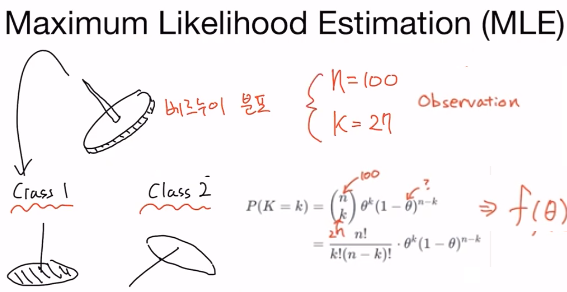 Maximum Likelihood Estimation (MLE)
베르누이 분포
n=100
k=27
Observation
Crass 1
Class 2
100
?
P(K = k) = \binom{n}{k} θ^k(1 − θ)^{n−k}
⇒ f(θ)
27
= \frac{n!}{k!(n − k)!} · θ^k(1 − θ)^{n−k}